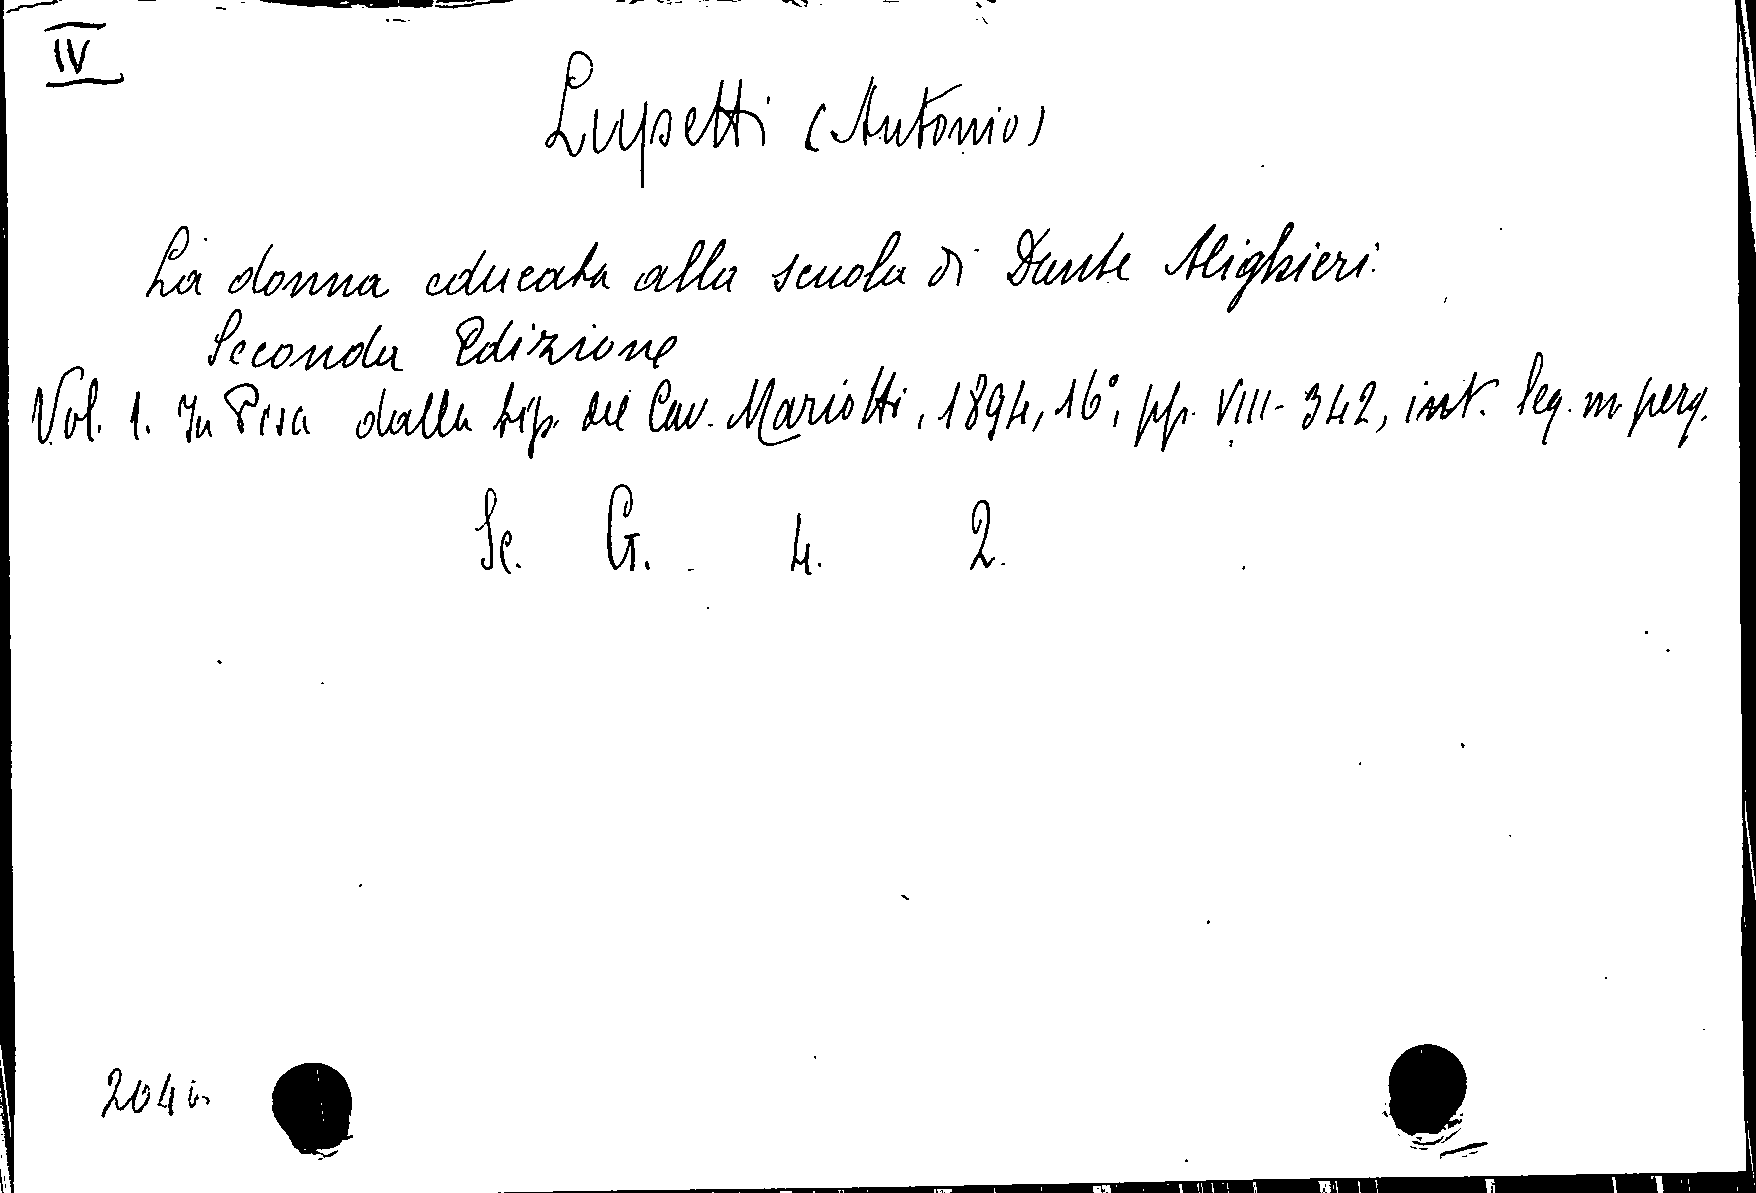 IV
Lupetti (Antonio)
La donna educata alla scuola di Dante Alighieri.
Seconda Edizione
Vol. 1. In Pisa dalla tip. del Cav. Mariotti, 1894, 16°, pp. VIII-342, int. leg. m. perg.
Sc. G. 4. 2.